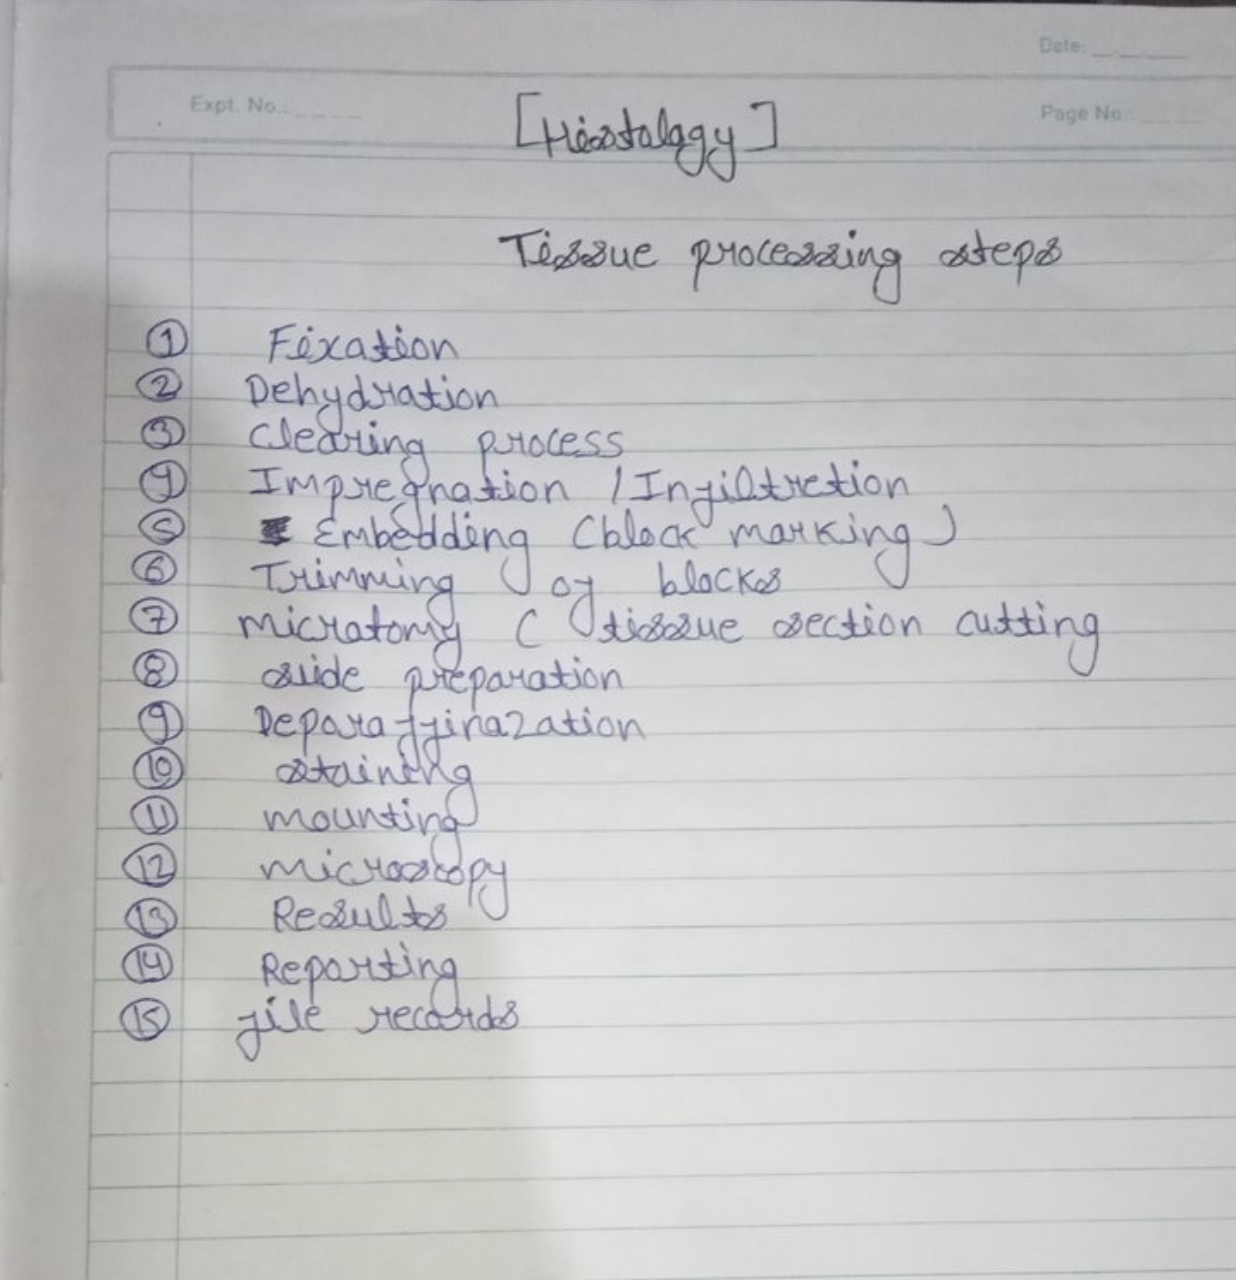 Date:
Expt. No.:
[Histology]
Page No.:
Tissue processing steps
① Fixation
② Dehydration
③ Clearing process
④ Impregnation / Infiltretion
⑤ Embedding (block marking)
⑥ Trimming of blocks
⑦ microtomy ( tissue section cutting
⑧ slide preparation
⑨ Deparaffinazation
⑩ staining
⑪ mounting
⑫ microscopy
⑬ Results
⑭ Reporting
⑮ file records